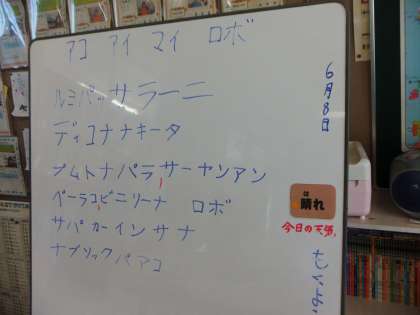 アコ アイ マイ ロボ
ルミパッサラーニ
ディコナナキータ
ナムトナパラ サーヤンアン
ベーラコビニリーナ ロボ
サパカーインサナ
ナブソックパアコ
6月8日
は
晴れ
今日の天気